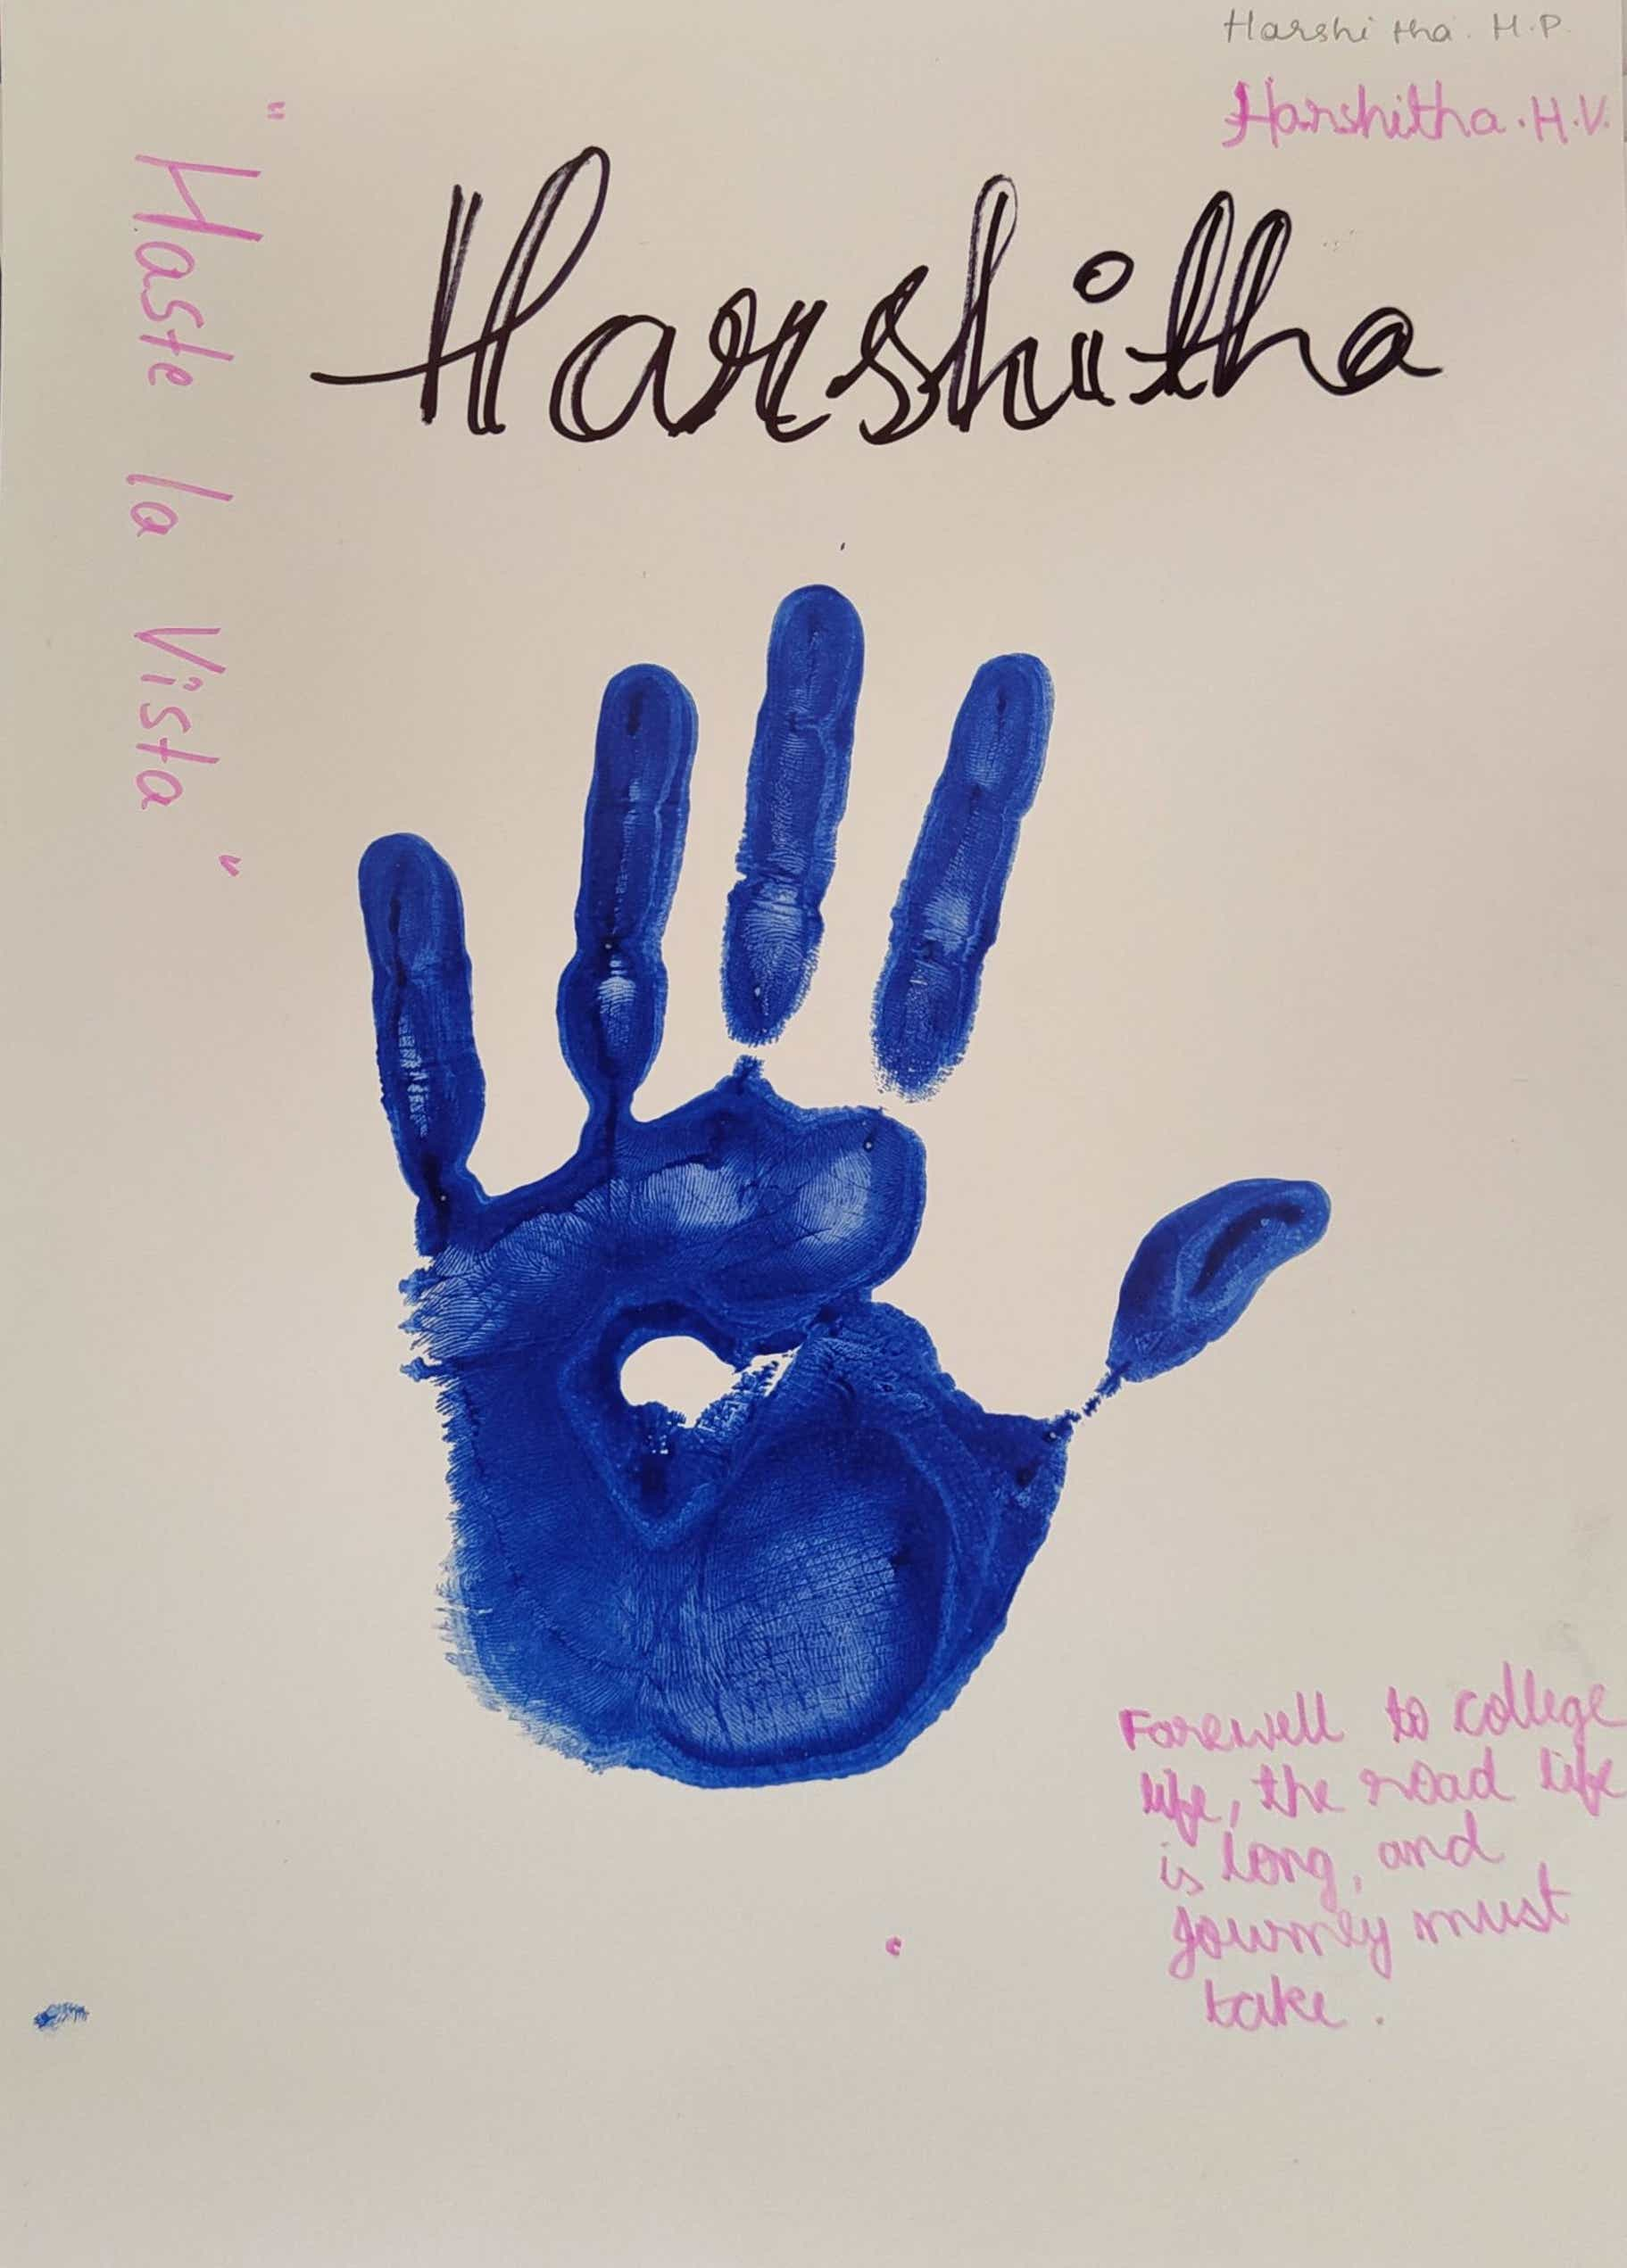 Harshitha. H.P.
Harshitha. H.V.
Harshitha
"Haste la Vista"
Farewell to college
life, the road life
is long, and
journey must
take.